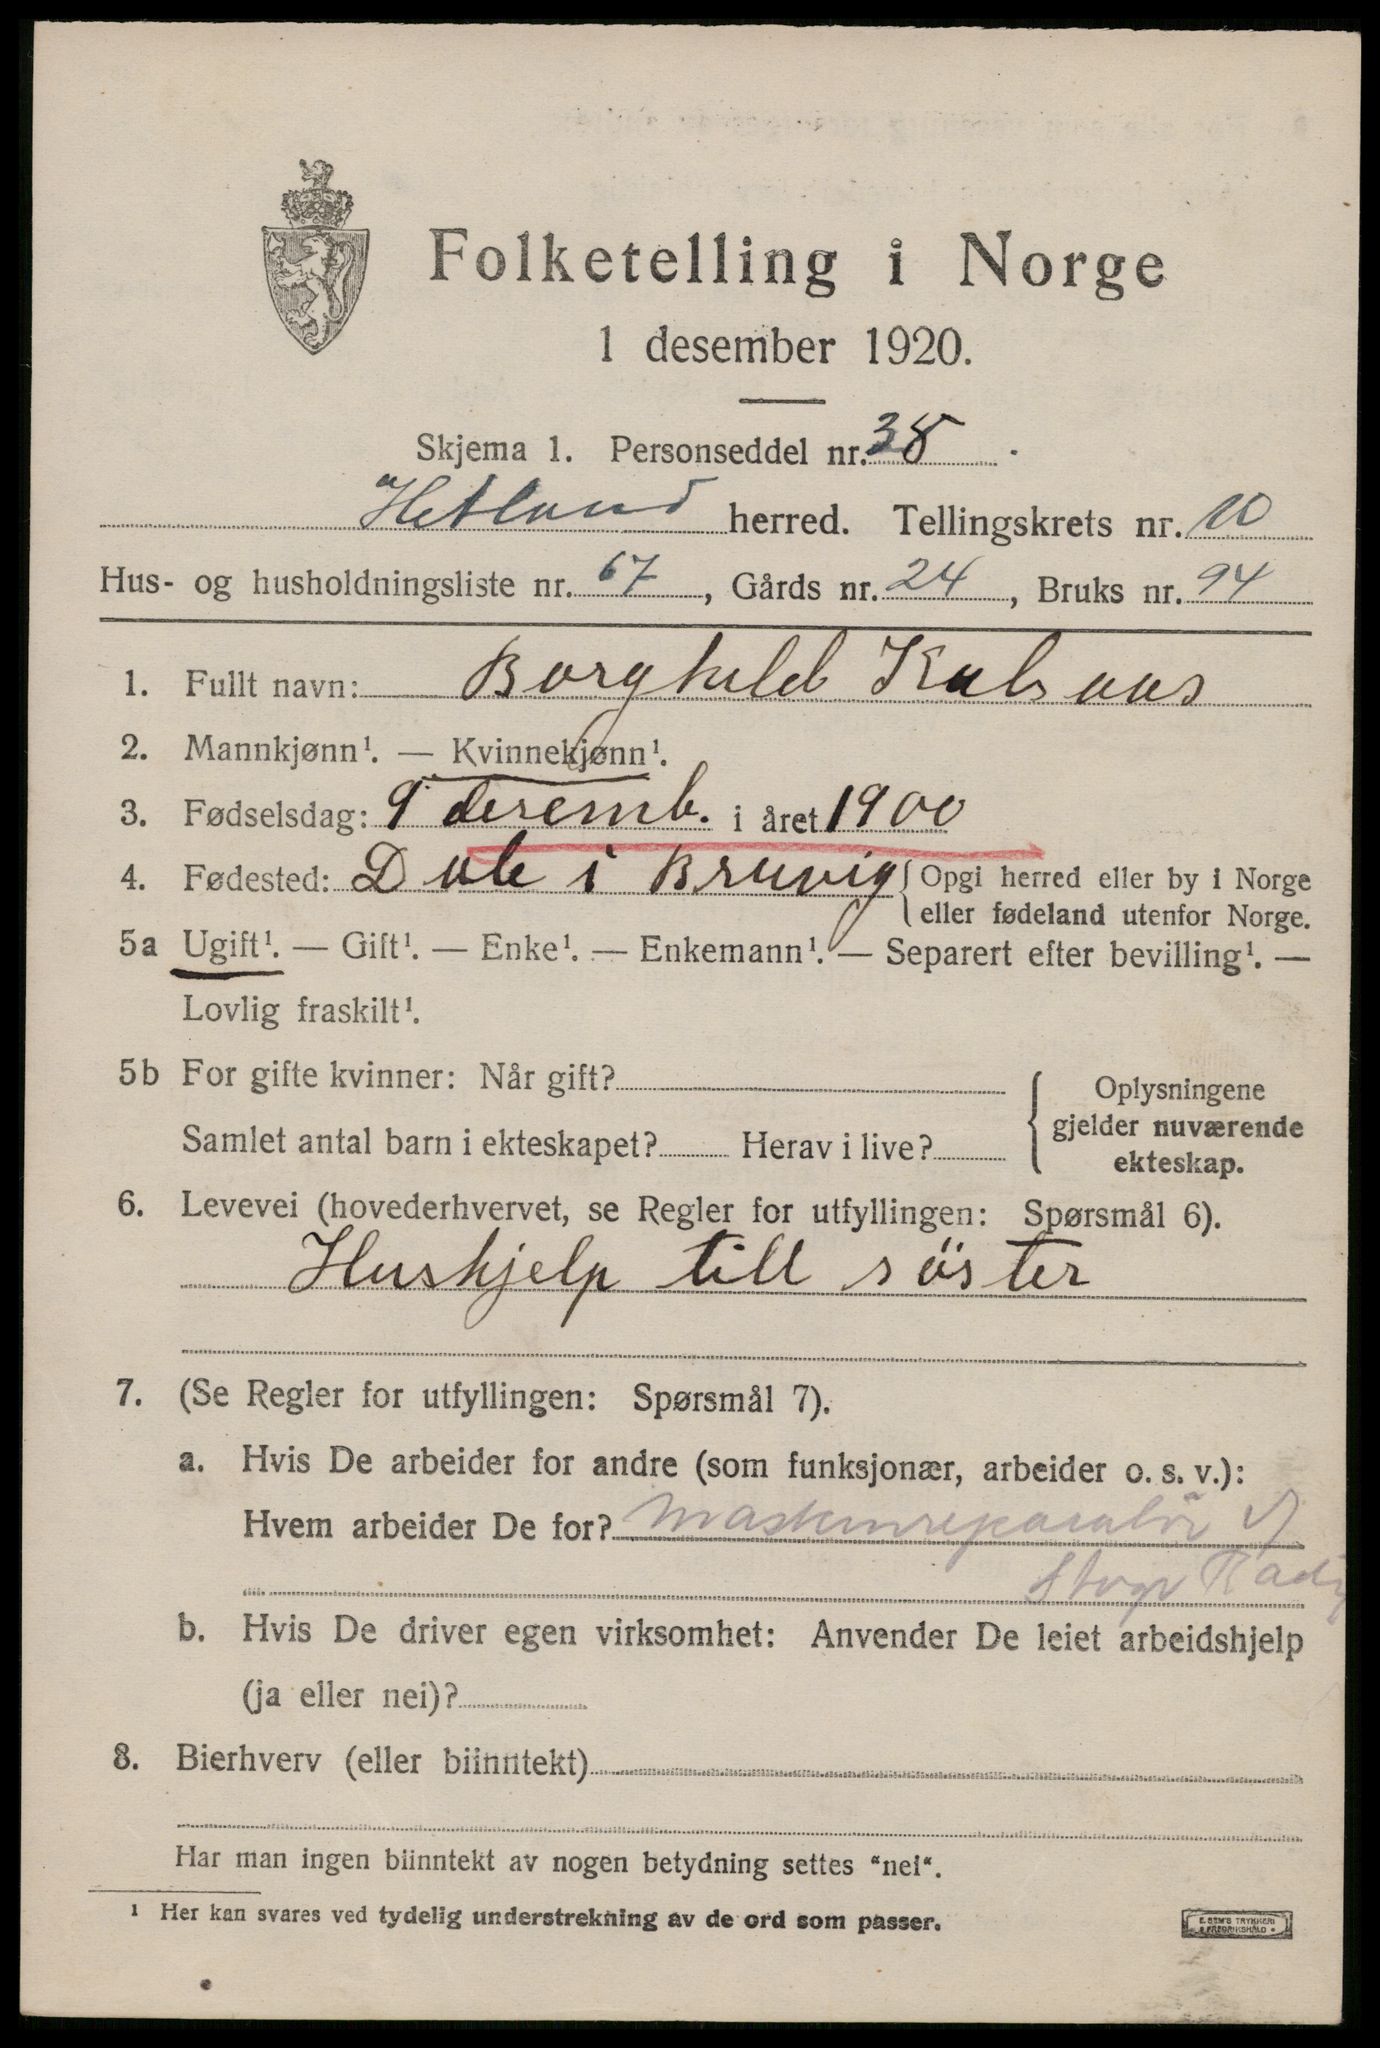 Folketelling i Norge
1 desember 1920.
Skjema 1. Personseddel nr. 38.
Hetland herred. Tellingskrets nr. 10
Hus- og husholdningsliste nr. 67, Gårds nr. 24, Bruks nr. 94
1. Fullt navn: Borghild
2. Mannkjønn¹. — Kvinnekjønn¹.
3. Fødselsdag: 9 desemb. i året 1900
4. Fødested: Dale i Bruvig { Opgi herred eller by i Norge
eller fødeland utenfor Norge.
5a Ugift¹. — Gift¹. — Enke¹. — Enkemann¹. — Separert efter bevilling¹. —
Lovlig fraskilt¹.
5b For gifte kvinner: Når gift?
Samlet antal barn i ekteskapet? Herav i live?
{ Oplysningene
gjelder nuværende
ekteskap.
6. Levevei (hovederhvervet, se Regler for utfyllingen: Spørsmål 6).
Hushjelp till söster
7. (Se Regler for utfyllingen: Spørsmål 7).
a. Hvis De arbeider for andre (som funksjonær, arbeider o. s. v.):
Hvem arbeider De for? Maskinreparatör
b. Hvis De driver egen virksomhet: Anvender De leiet arbeidshjelp
(ja eller nei)?
8. Bierhverv (eller biinntekt)
Har man ingen biinntekt av nogen betydning settes "nei".
1 Her kan svares ved tydelig understrekning av de ord som passer.
E. SEM'S TRYKKERI
FREDRIKSHALD